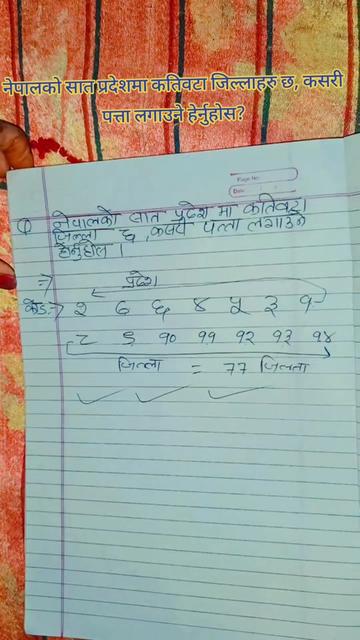 नेपालको सात प्रदेशमा कतिवटा जिल्लाहरु छ, कसरी
पत्ता लगाउने हेर्नुहोस?
Page No:
Date:
Q नेपालको सात प्रदेश मा कतिवटा
जिल्ला छ, कसरी पत्ता लगाउने
हेर्नुहोस ।
=> प्रदेश
कोड:-> २ ७ ६ ४ ५ ३ १
८ ९ १० ११ १२ १३ १४
जिल्ला = 77 जिल्ला